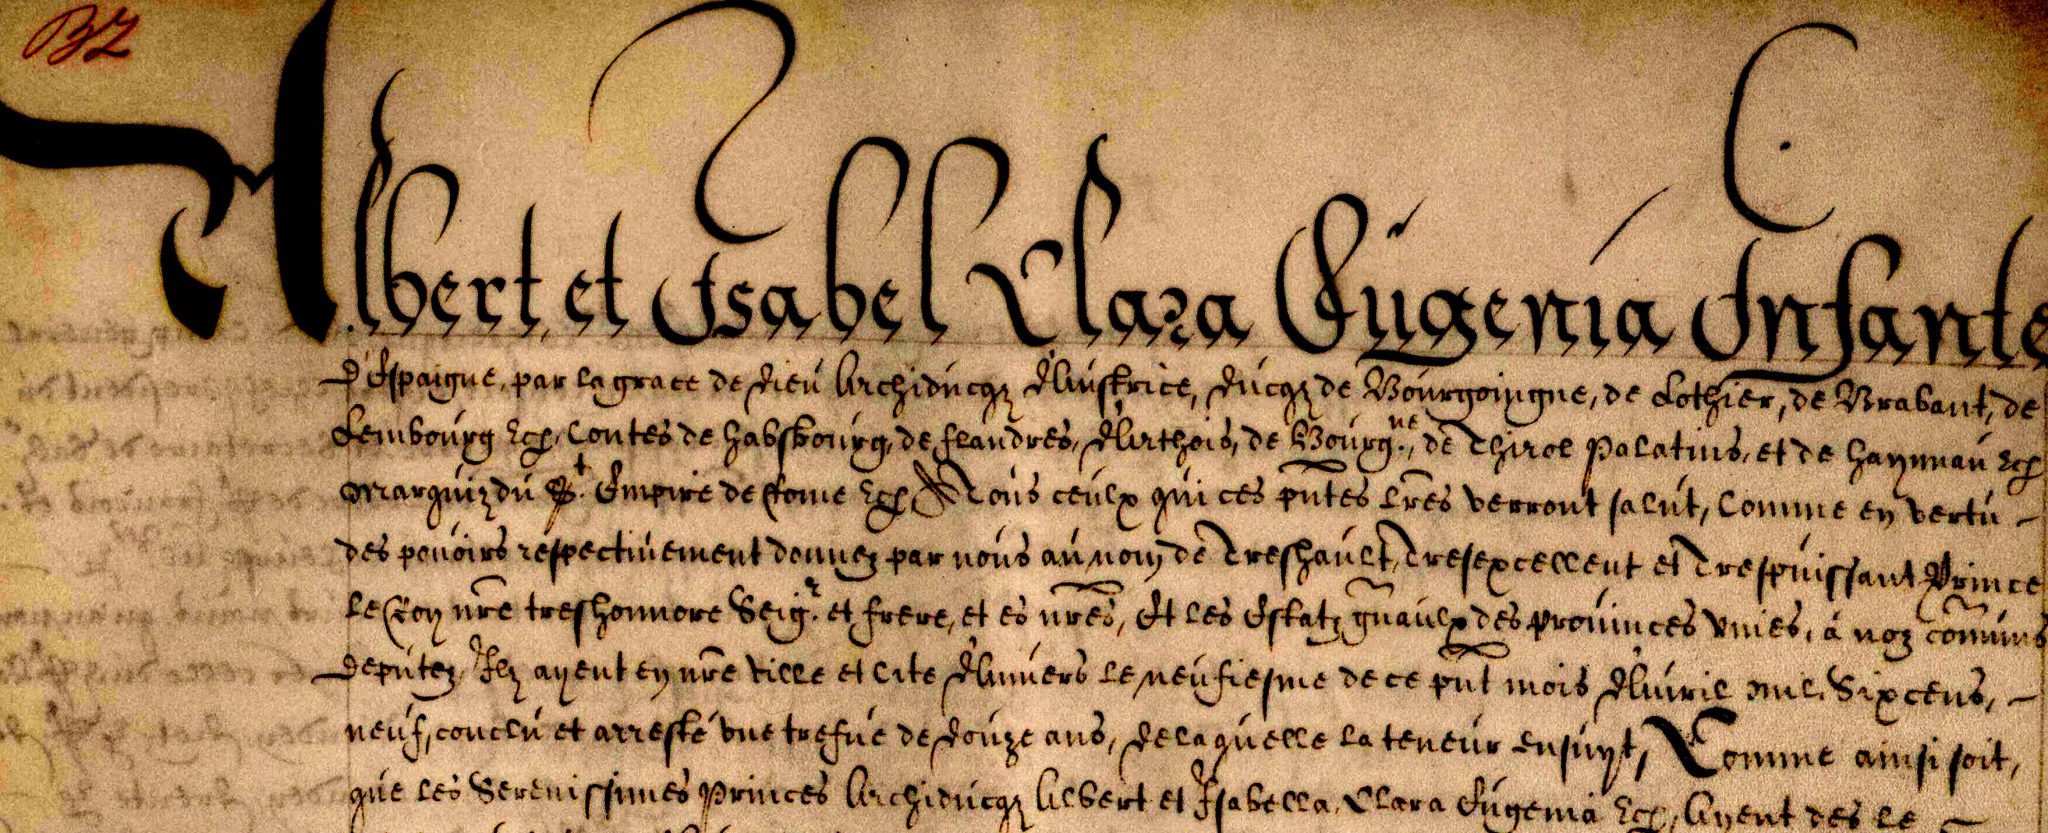 32
Albert et Isabel Clara Eugenia Infante
d'Espaigne, par la grace de dieu Archiducqz d'Austrice, ducqz de Bourgoingne, de Lothier, de Brabant, de
Lembourg etc, Contes de habsbourg, de flandres, d'Arthois, de Bourg.ne, de Thirol Palatins, et de haynnau etc
Marquiz du St. Empire de Rome etc A Tous ceulx qui ces pntes lres verront salut, Comme en vertu
des pouoirs respectiuement donnez par nous au nom de Treshault, Tresexcellent et Trespuissant Prince
le Roy nre treshonnore Seigr. et frere, et es nres, Et les Estatz gnaulx des prouinces vnies, a noz commis
deputez, Ilz ayent en nre ville et Cite d'Anuers le neufiesme de ce pnt mois d'Auril mil. Sixcens,
neuf, conclu et arresté vne trefue de douze ans, de laquelle la teneur ensuyt, Comme ainsi soit,
que les Serenissimes Princes Archiducqz Albert et Isabella Clara Eugenia etc, Ayent des le